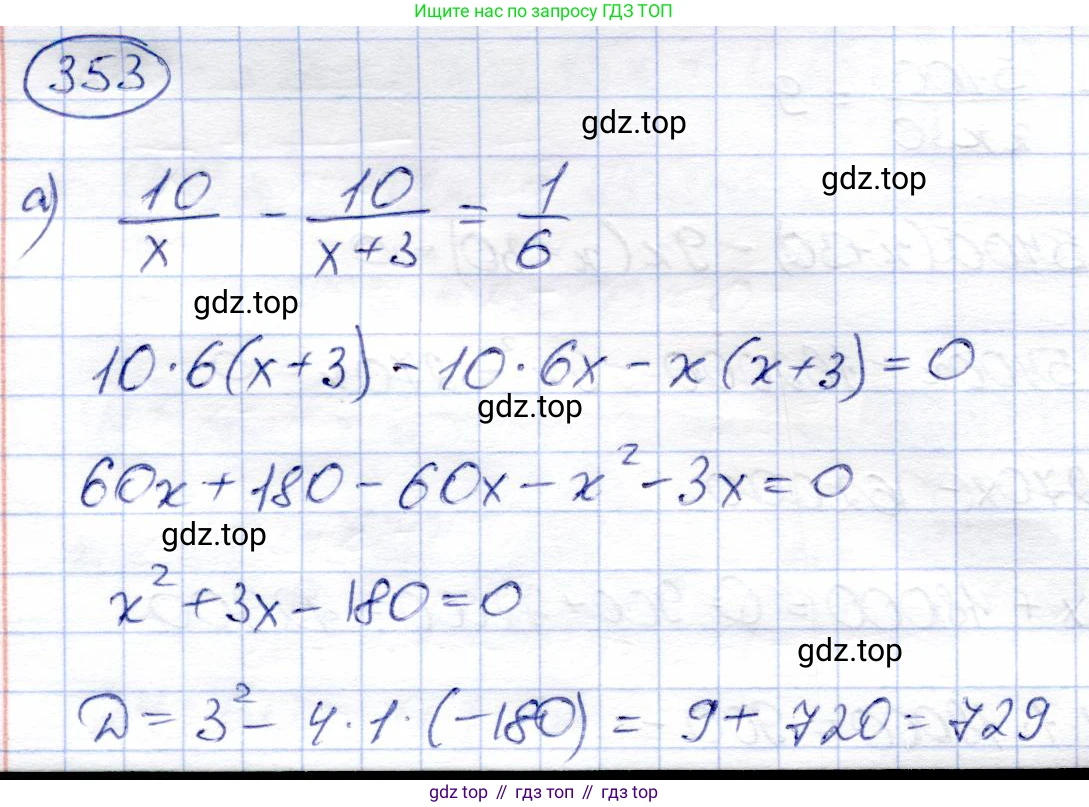 Ищите нас по запросу ГДЗ ТОП
353
gdz.top
gdz.top
а) 10/x - 10/(x+3) = 1/6
gdz.top
10·6(x+3) - 10·6x - x(x+3) = 0
gdz.top
60x + 180 - 60x - x² - 3x = 0
gdz.top
x² + 3x - 180 = 0
gdz.top
D = 3² - 4·1·(-180) = 9 + 720 = 729
gdz top // гдз топ // gdz top